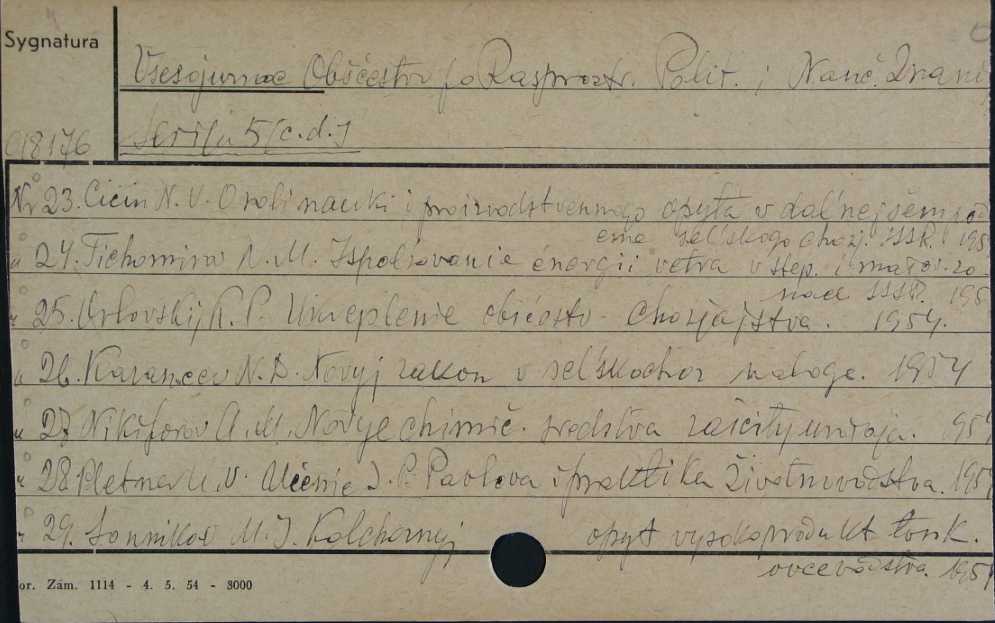 Sygnatura
Vsesojuznoe Obščestvo po Rasprostr. Polit. i Nauč. Znani
C18176
Serija 5 (c.d.)
Nr 23. Cicin N. V. O roli nauki i proizvodstvennogo opyta v dal'nejšem pod
eme sel'skogo choz. SSSR. 195
" 24. Tichomirov V. M. Ispol'zovanie énergii vetra v step. i
nach SSSR. 195
" 25. Orlovskij K. P. Ukreplenie obščestv. chozjajstva. 1954.
" 26. Karamzeev N. D. Novyj zakon o sel'skochoz naloge. 1954
" 27 Nikiforov A. M. Novye chimič. sredstva zaščity urožaja. 1954
" 28 Pletnev U. V. Učenie I. P. Pavlova i praktika životnovodstva. 1954
" 29. Sannikov M. I. Kolchoznyj opyt vysokoprodukt tonk.
ovcevodstva. 1954
or. Zám. 1114 - 4. 5. 54 - 3000